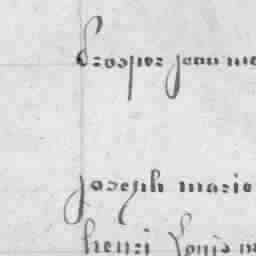 Prosper jean ma
joseph marie
henri Louis m